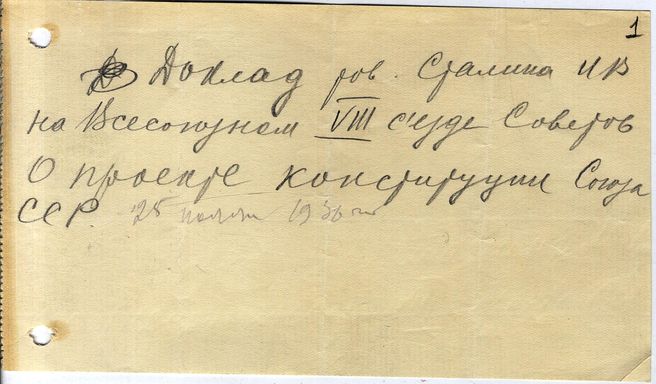 1
Доклад тов. Сталина И В
на Всесоюзном VIII с'езде Советов
О проекте конституции Союза
ССР. 25 ноября 1936 г